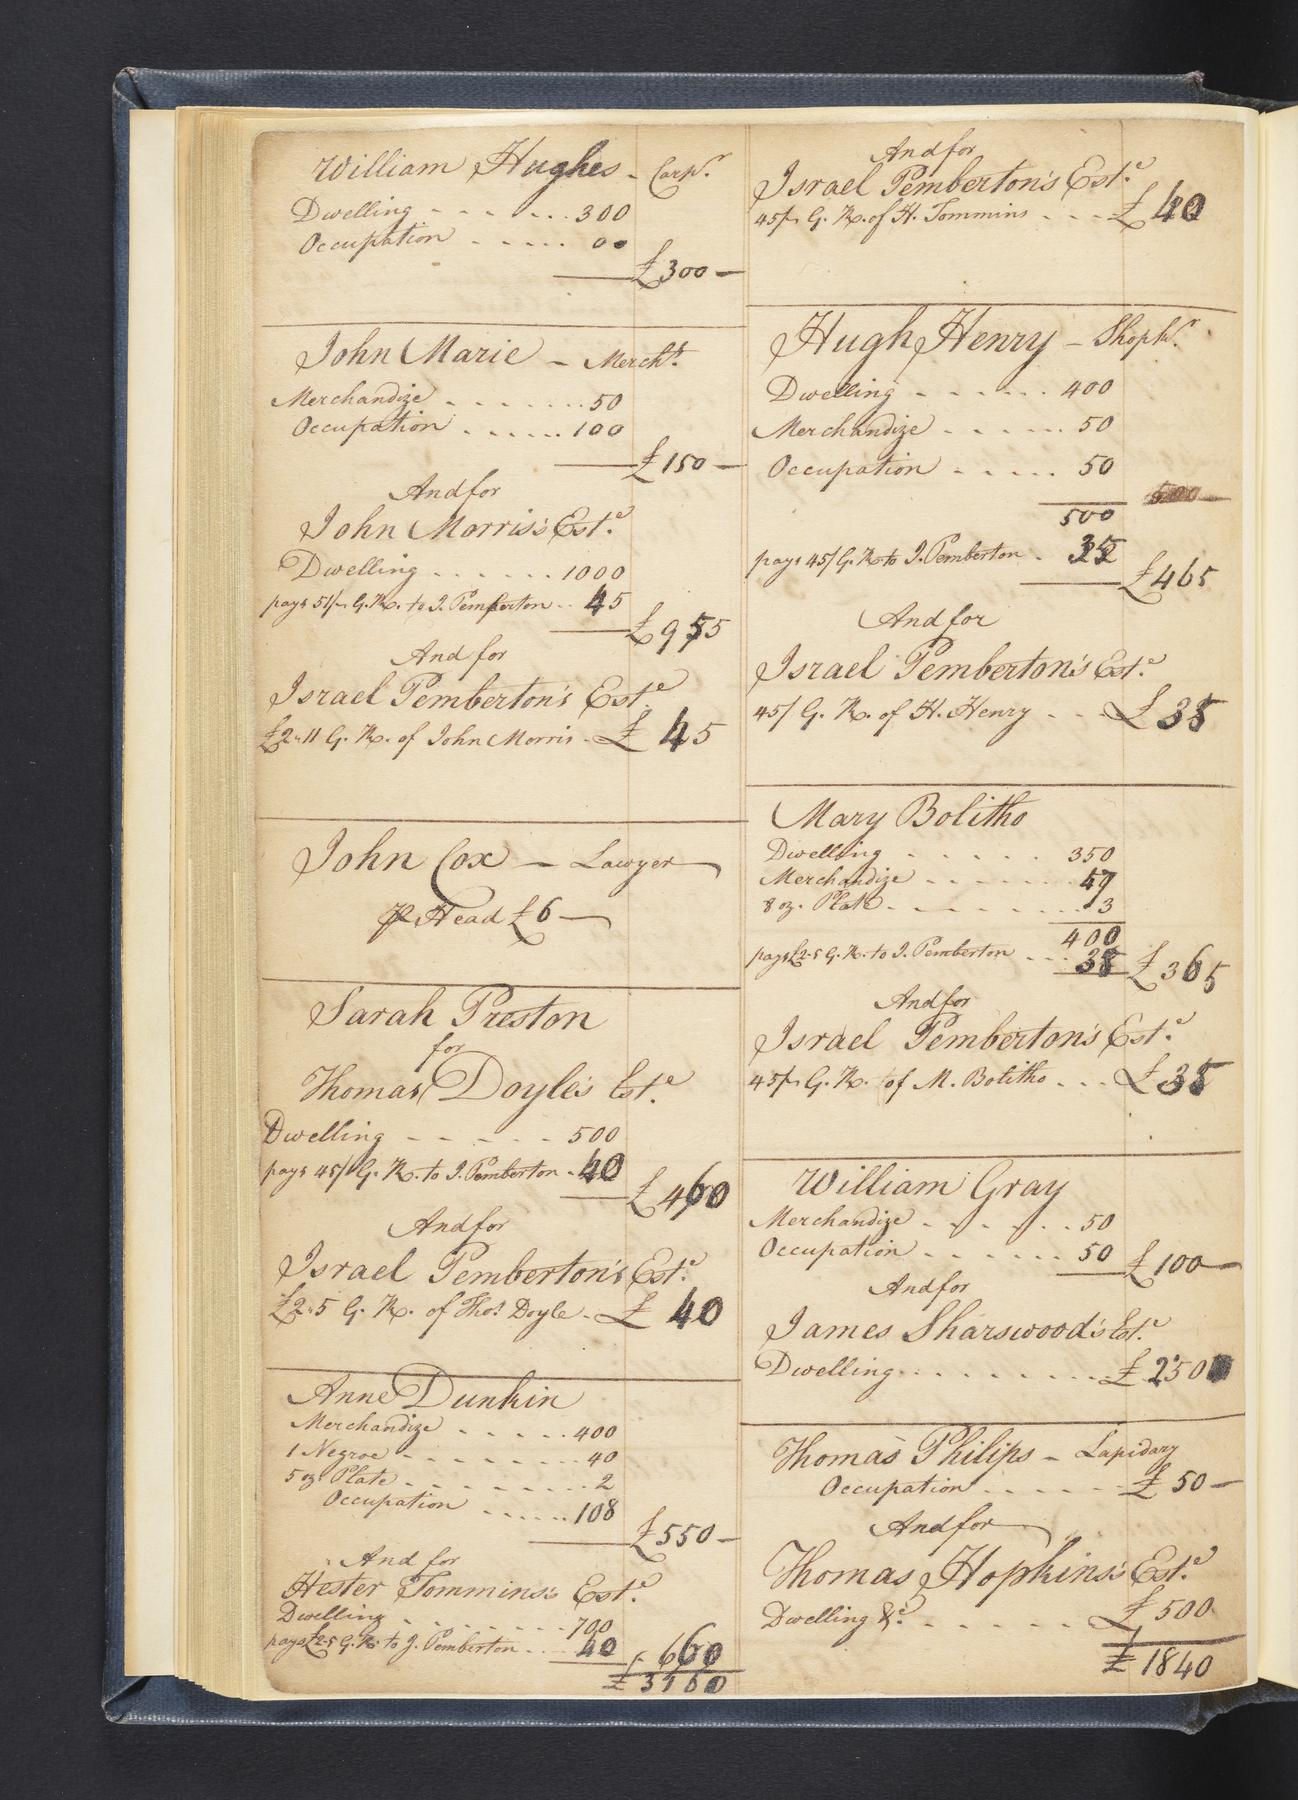 William Hughes - Carpr.
Dwelling - - - - . . . 300
Occupation - - - - - 00
£300 -
John Marie - Mercht.
Merchandize - - - - - - . . 50
Occupation . - - - . . 100
£150 -
And for
John Morris's Este.
Dwelling - - - - - - . 1000
pays 51/- G. R. to I. Pemberton - . 45
£955
And for
Israel Pemberton's Este.
£2 " 11 G. R. of John Morris - £ 45
John Cox - Lawyer
P Head £6 -
Sarah Preston
for
Thomas Doyle's Este.
Dwelling - - - - - 500
pays 45/ G. R. to I. Pemberton - 40
£460
And for
Israel Pemberton's Este.
£2 " 5 G. R. of Thos. Doyle - £ 40
Anne Dunkin
Merchandize - - - - - . 400
1 Negroe - - - - - - - - . 40
5 oz. Plate - - - - - - - . . 2
Occupation - - - . . . 108
£550 -
And for
Hester Tommins's Este.
Dwelling - - - - - - - 700
pays £2-5 G. R. to I. Pemberton - . . 40
£660
£
And for
Israel Pemberton's Este.
45/- G. R. of H. Tommins - - - £40
Hugh Henry - Shopkr.
Dwelling - - - - . . . 400
Merchandize - - - - . . 50
Occupation - - - . . 50
500
500
pays 45/ G. R. to I. Pemberton . 35
£465
And for
Israel Pemberton's Este.
45/ G. R. of H. Henry - - - £35
Mary Bolitho
Dwelling - - - - - - 350
Merchandize - - - - - - . 47
8 oz. Plate - - - - - - - . . 3
400
pays £2-5 G. R. to I. Pemberton - - . 35
£365
And for
Israel Pemberton's Este.
45/- G. R. of M. Bolitho - - - £35
William Gray
Merchandize - - - - - . . 50
Occupation - - - - - - . 50
£100 -
And for
James Sharswood's Este.
Dwelling . . . . . . . . . . - £250
Thomas Philips - Lapidary
Occupation - - - - - - £50 -
And for
Thomas Hopkins's Este.
Dwelling &c. - - - - - - £500
£1840